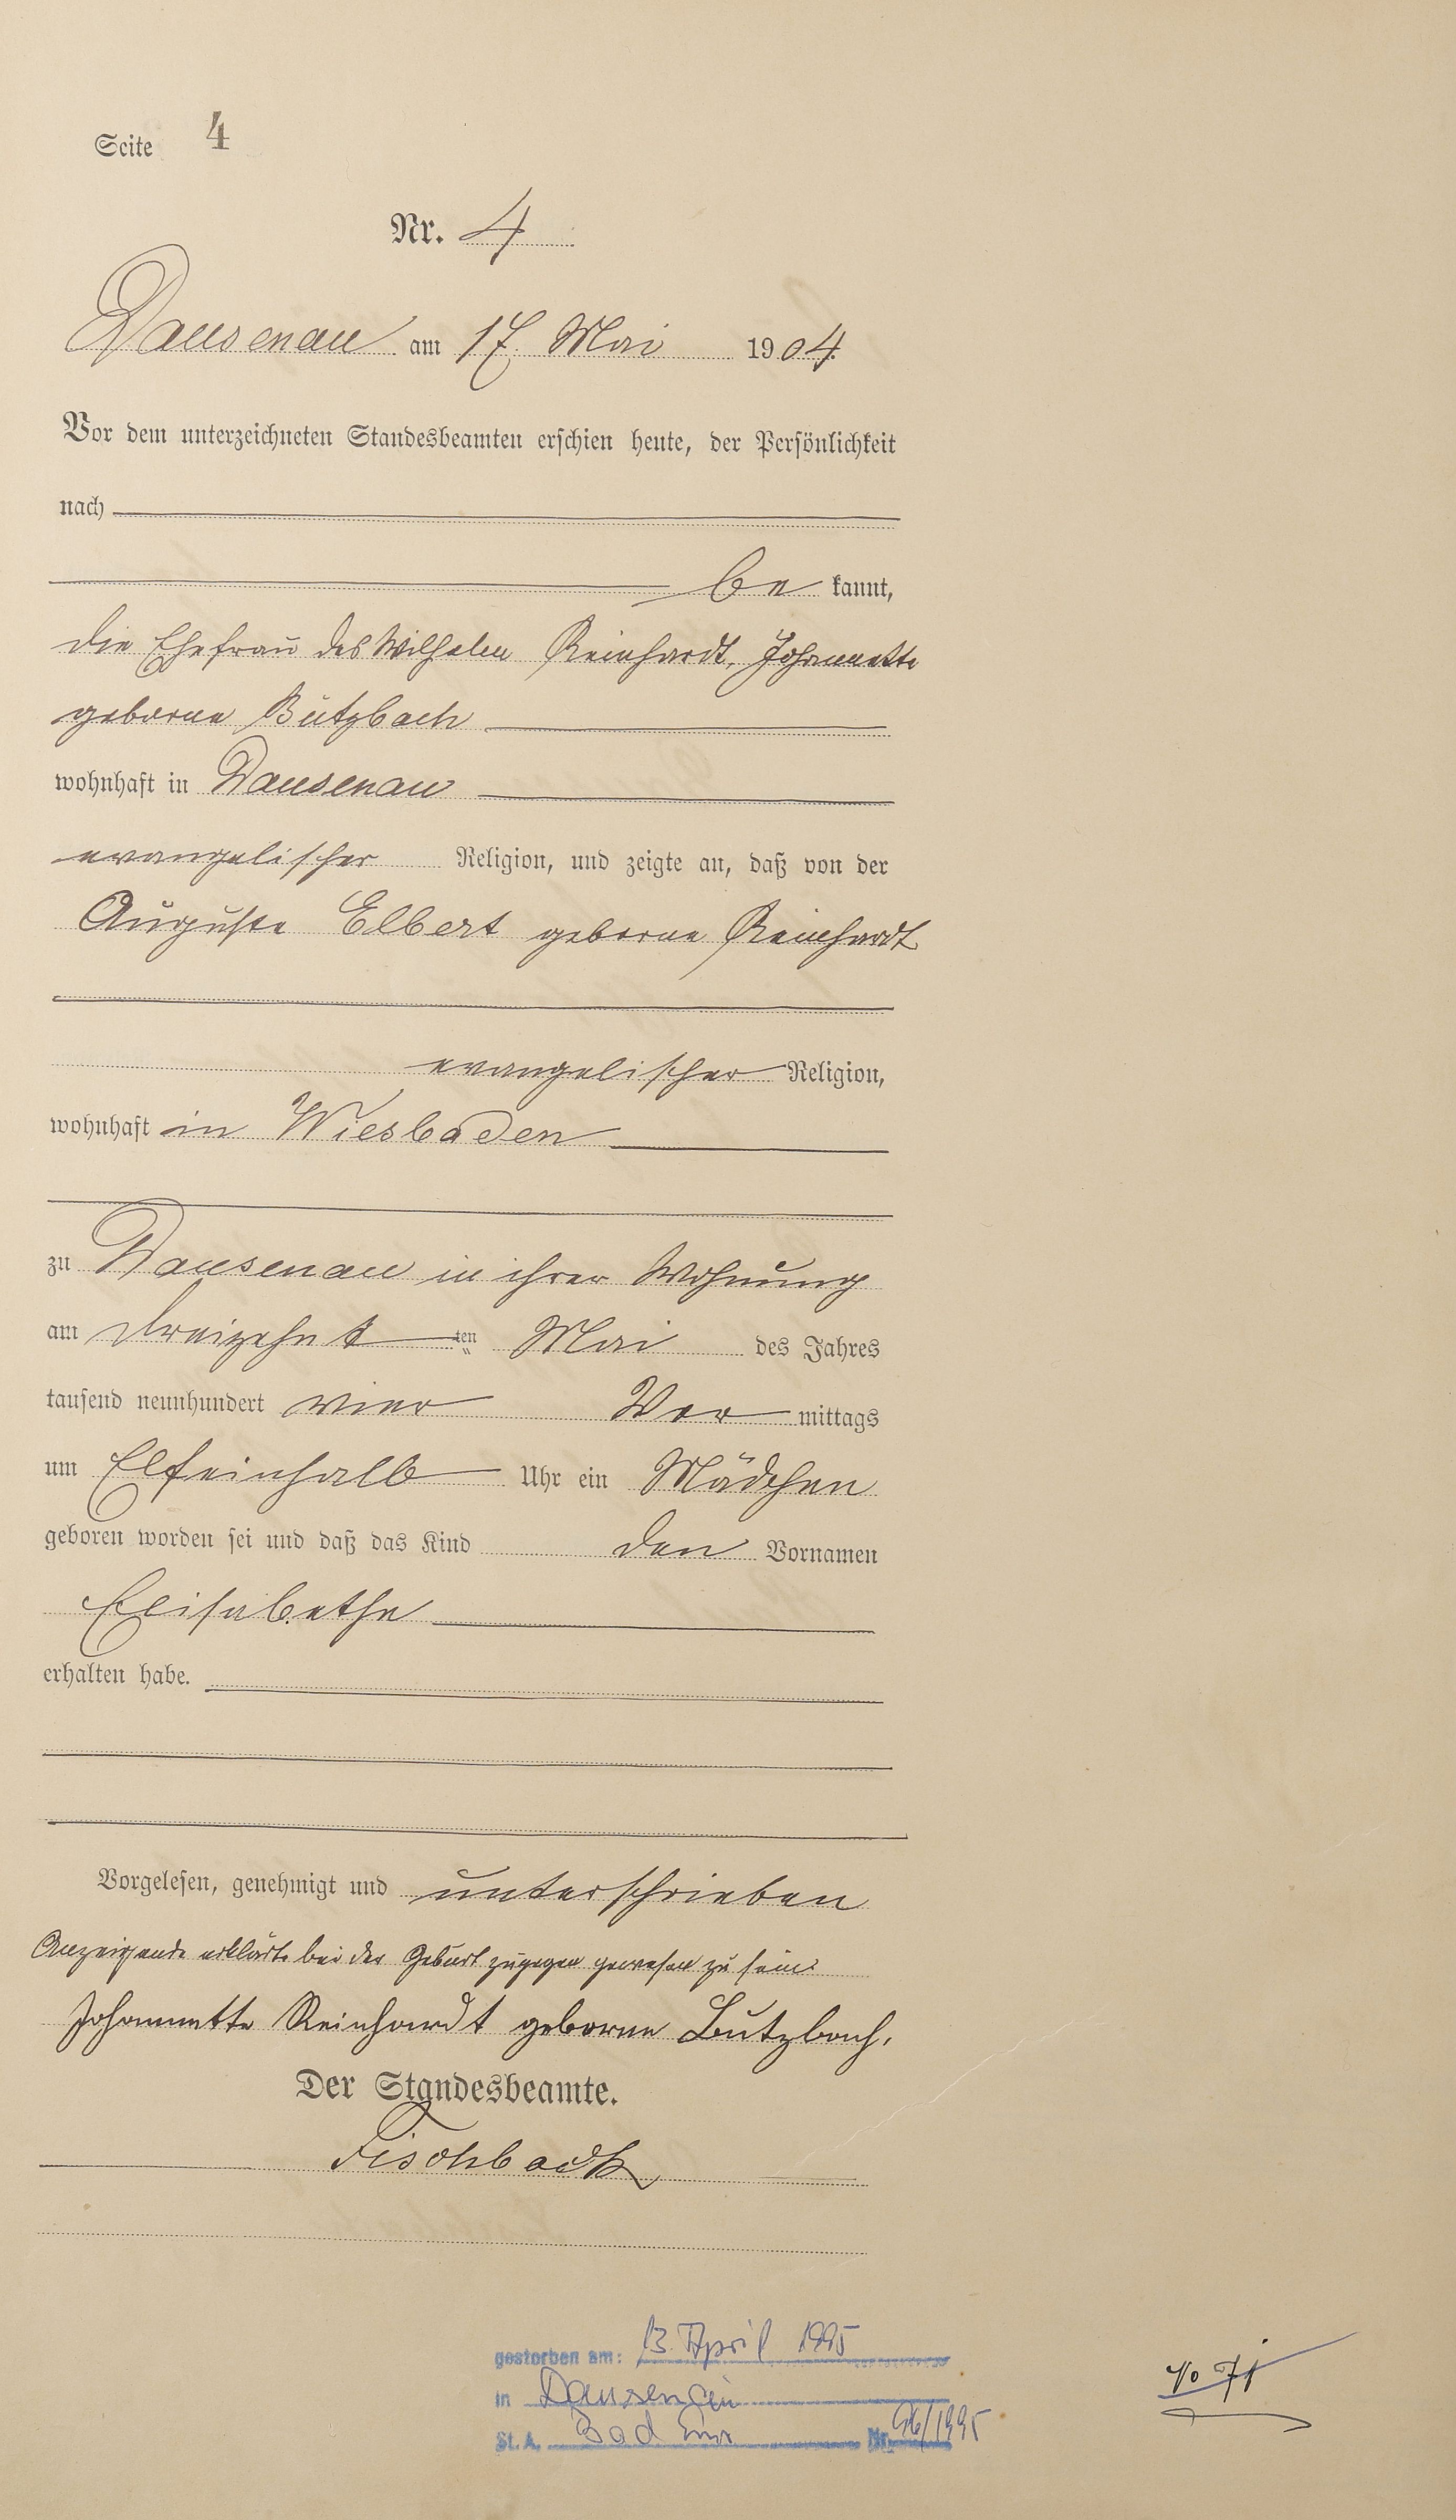 Seite 4
Nr. 4
Dausenau am 17. Mai 1904.
Vor dem unterzeichneten Standesbeamten erschien heute, der Persönlichkeit
nach
be kannt,
die Ehefrau des Wilhelm Reinhardt, Johannette
geborne Butzbach
wohnhaft in Dausenau
evangelischer Religion, und zeigte an, daß von der
Auguste Elbert geborne Reinhardt
evangelischer Religion,
wohnhaft in Wiesbaden
zu Dausenau in ihrer Wohnung
am dreizehnt ten Mai des Jahres
tausend neunhundert vier Vor mittags
um Elfeinhalb Uhr ein Mädchen
geboren worden sei und daß das Kind den Vornamen
Elisabethe
erhalten habe.
Vorgelesen, genehmigt und unterschrieben
Anzeigende erklärte bei der Geburt zugegen gewesen zu sein.
Johannette Reinhardt geborne Butzbach.
Der Standesbeamte.
Fischbach
gestorben am: 13. April 1995
in Dausenau
St. A. Bad Ems Nr. /1995